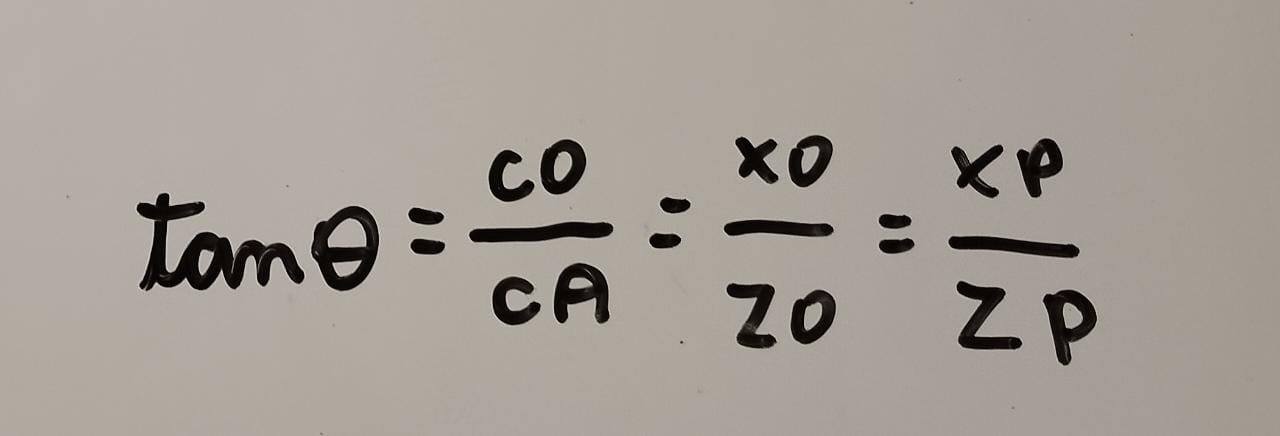 tanθ = CO/CA = XO/ZO = XP/ZP